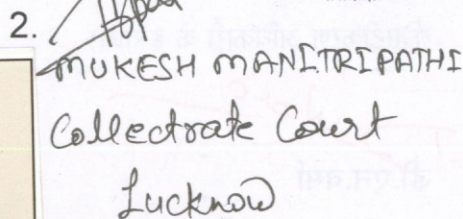 2.
MUKESH MANI TRIPATHI
Collectrate Court
Lucknow